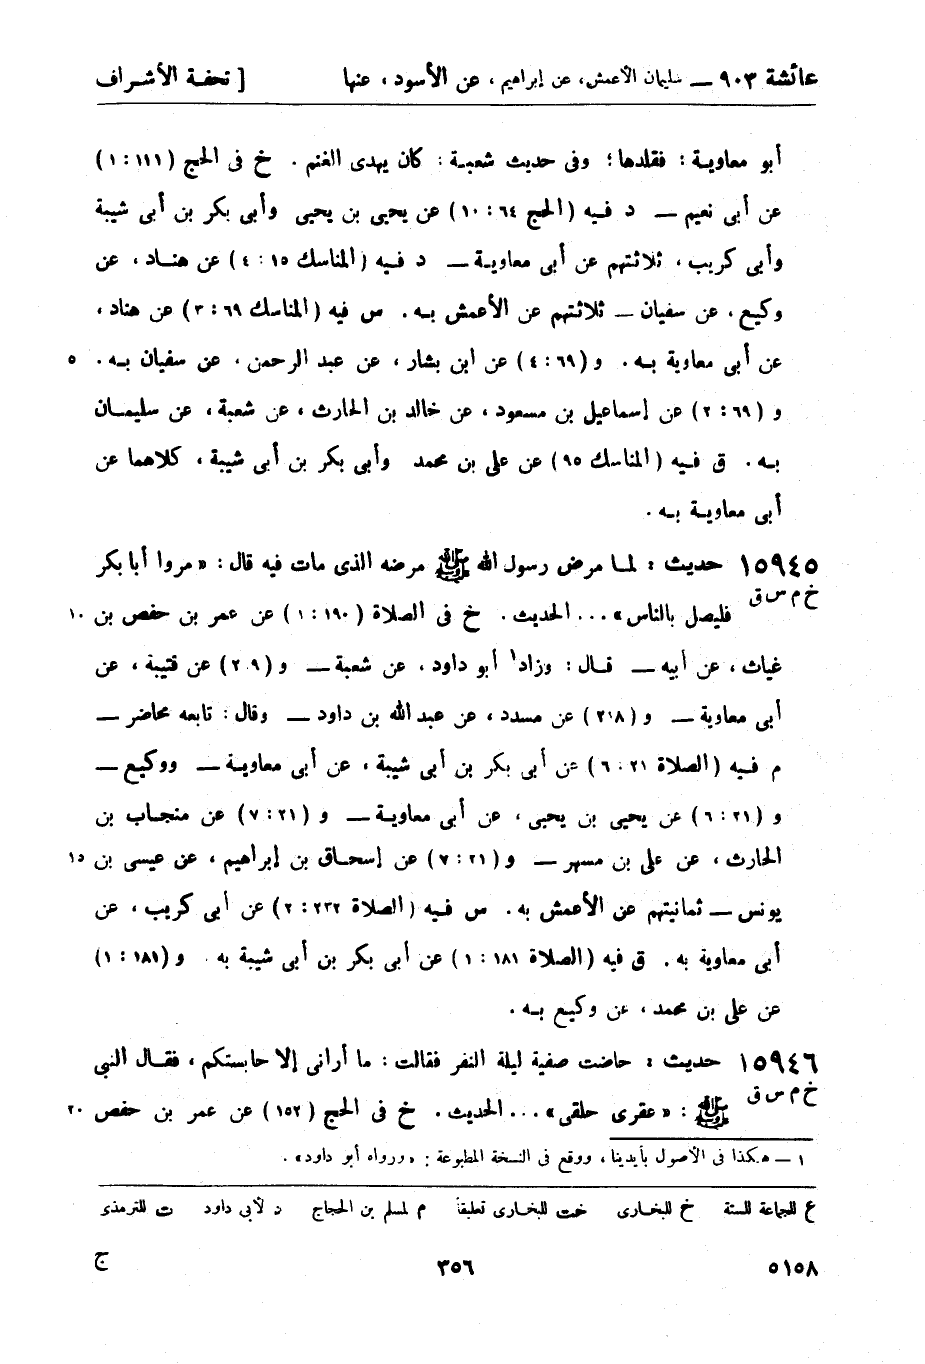 عائشة ٩٠٣ ــ سليمان الأعمش، عن إبراهيم، عن الأسود، عنها [ تحفة الأشراف
أبو معاوية : فقلدها ؛ وفى حديث شعبة : كان يهدى الغنم . خ فى الحج (١١١ : ١)
عن أبى نعيم ــ د فيه (الحج ٦٤ : ١٠) عن يحيى بن يحيى وأبى بكر بن أبى شيبة
وأبى كريب، ثلاثتهم عن أبى معاوية ــ د فيه (المناسك ١٥ : ٤) عن هناد، عن
وكيع، عن سفيان ــ ثلاثتهم عن الأعمش به. س فيه (المناسك ٦٩ : ٣) عن هناد،
عن أبى معاوية به. و (٦٩ : ٤) عن ابن بشار، عن عبد الرحمن، عن سفيان به. ٥
و (٦٩ : ٢) عن إسماعيل بن مسعود، عن خالد بن الحارث، عن شعبة، عن سليمان
به. ق فيه (المناسك ٩٥) عن على بن محمد وأبى بكر بن أبى شيبة، كلاهما عن
أبى معاوية به.
١٥٩٤٥ حديث : لما مرض رسول الله ﷺ مرضه الذى مات فيه قال : «مروا أبا بكر
خ م س ق فليصل بالناس» ... الحديث. خ فى الصلاة (١٩٠ : ١) عن عمر بن حفص بن ١٠
غياث، عن أبيه ــ قال : وزاد١ أبو داود، عن شعبة ــ و (٢٠٩) عن قتيبة، عن
أبى معاوية ــ و (٢٠٨) عن مسدد، عن عبد الله بن داود ــ وقال : تابعه محاضر ــ
م فيه (الصلاة ٢١ : ٦) عن أبى بكر بن أبى شيبة، عن أبى معاوية ــ ووكيع ــ
و (٢١ : ٦) عن يحيى بن يحيى، عن أبى معاوية ــ و (٢١ : ٧) عن منجاب بن
الحارث، عن على بن مسهر ــ و (٢١ : ٧) عن إسحاق بن إبراهيم، عن عيسى بن ١٥
يونس ــ ثمانيتهم عن الأعمش به. س فيه (الصلاة ٢٣٢ : ٢) عن أبى كريب، عن
أبى معاوية به. ق فيه (الصلاة ١٨١ : ١) عن أبى بكر بن أبى شيبة به. و (١٨١ : ١)
عن على بن محمد، عن وكيع به.
١٥٩٤٦ حديث : حاضت صفية ليلة النفر فقالت : ما أرانى إلا حابستكم، فقال النبى
خ م س ق ﷺ : «عقرى حلقى» ... الحديث. خ فى الحج (١٥٢) عن عمر بن حفص ٢٠
١ ــ هكذا فى الأصول بأيدينا، ووقع فى النسخة المطبوعة : «ورواه أبو داود».
ع للجماعة للستة خ للبخارى خت للبخارى تعليقاً م لمسلم بن الحجاج د لأبى داود ت للترمذى
٥١٥٨ ٣٥٦ ج